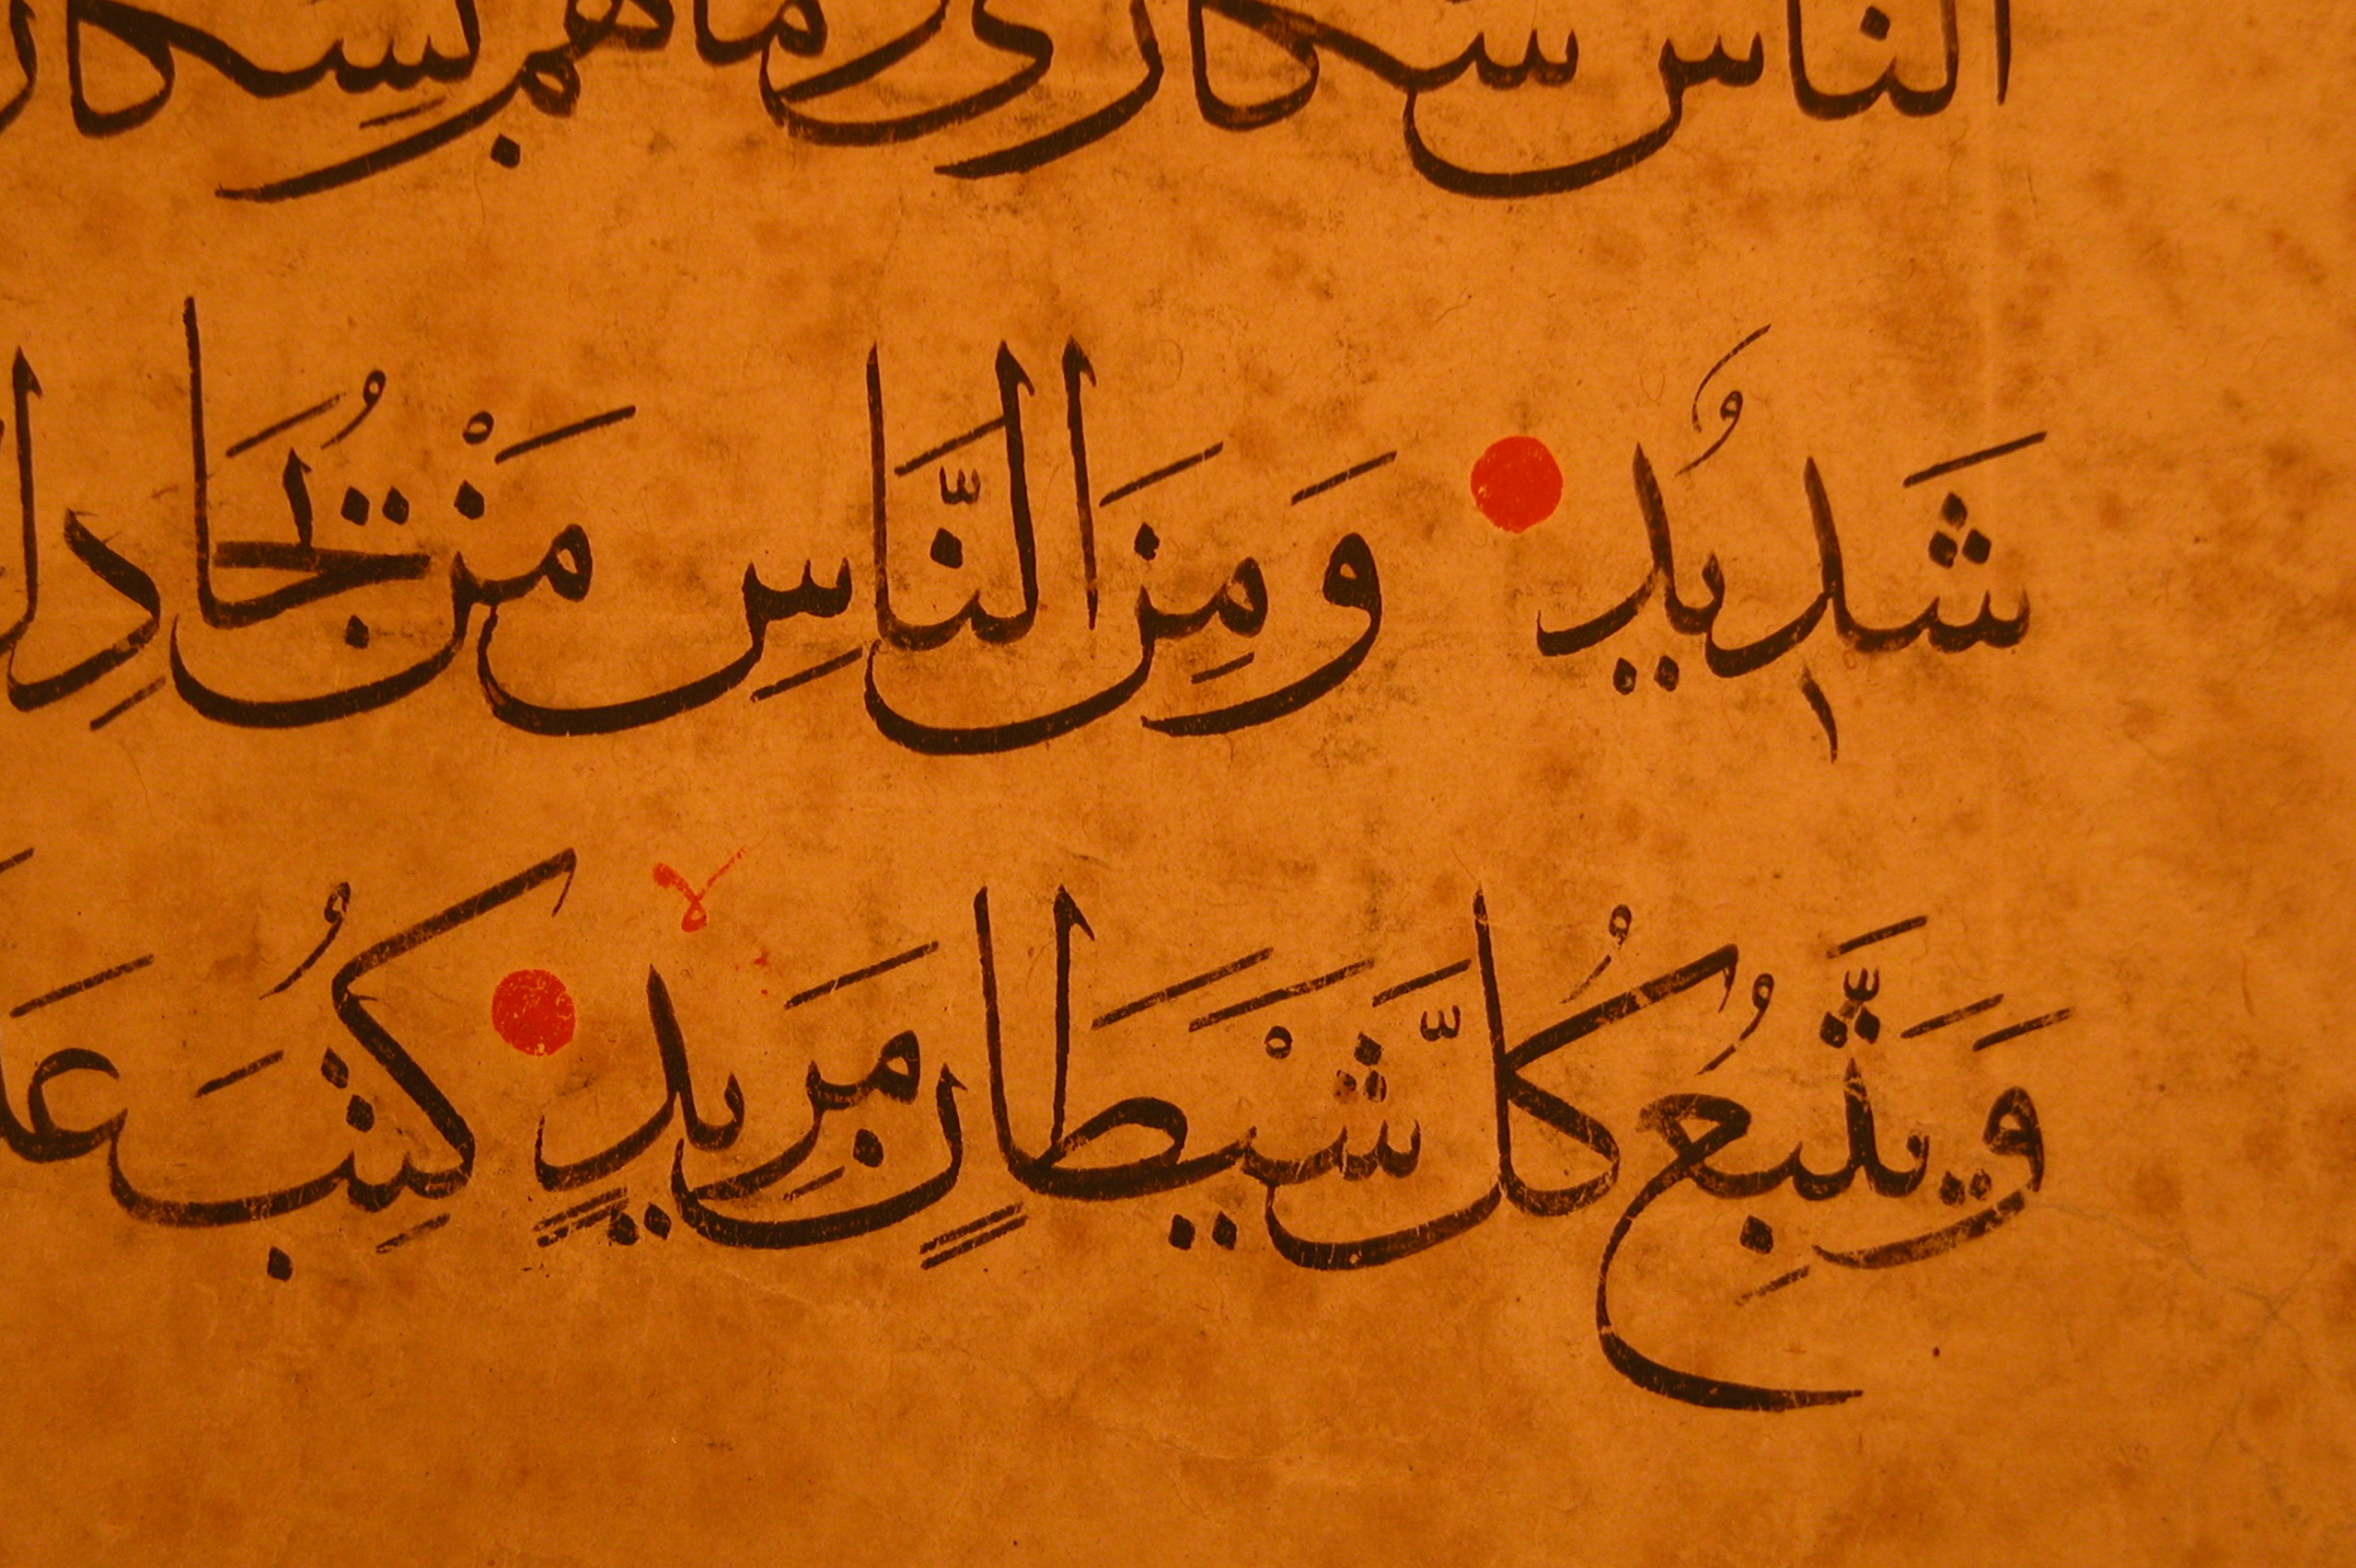 الناس سكارى وما هم بسكار
شَدِيدٌ وَمِنَ النَّاسِ مَنْ يُجَادِل
وَيَتَّبِعُ كُلَّ شَيْطَانٍ مَرِيدٍ كُتِبَ عَلَ